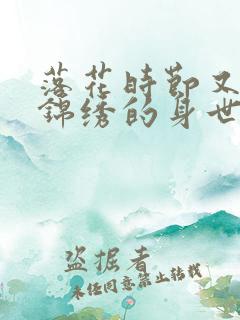 落花時节又
錦绣的身世
盗掘者
未经同意禁止转载